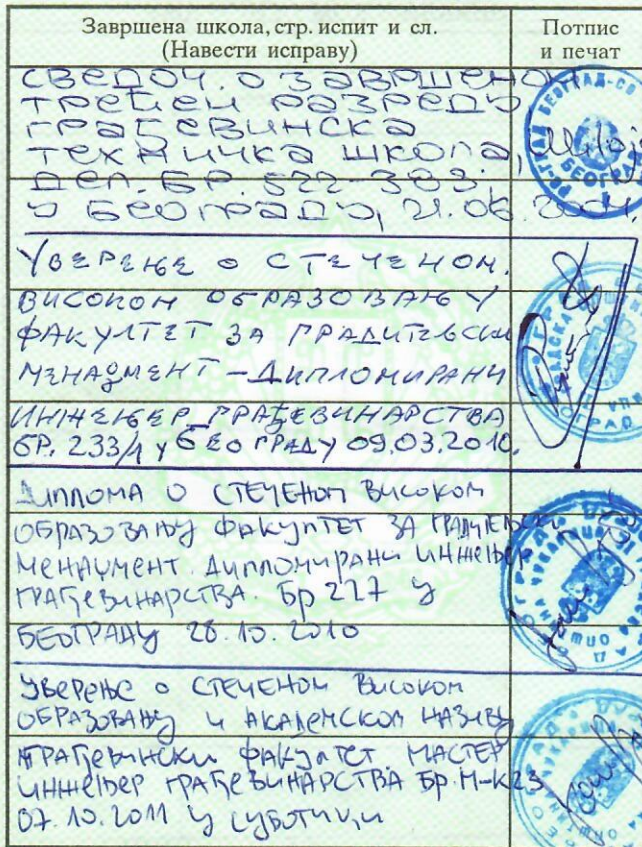 Завршена школа, стр. испит и сл.
(Навести исправу)
Потпис
и печат
СВЕДОЧ. О ЗАВРШЕНОМ
ТРЕЋЕМ РАЗРЕДУ
ГРАЂЕВИНСКА
ТЕХНИЧКА ШКОЛА,
ДЕЛ. БР. 522-303,
У БЕОГРАДУ, 21.06.2004.
УВЕРЕЊЕ О СТЕЧЕНОМ
ВИСОКОМ ОБРАЗОВАЊУ
ФАКУЛТЕТ ЗА ГРАДИТЕЉСКИ
МЕНАЏМЕНТ - ДИПЛОМИРАНИ
ИНЖЕЊЕР ГРАЂЕВИНАРСТВА
БР. 233/1 У БЕОГРАДУ 09.03.2010.
ДИПЛОМА О СТЕЧЕНОМ ВИСОКОМ
ОБРАЗОВАЊУ ФАКУЛТЕТ ЗА ГРАДИТЕЉСКИ
МЕНАЏМЕНТ. ДИПЛОМИРАНИ ИНЖЕЊЕР
ГРАЂЕВИНАРСТВА. Бр 227 У
БЕОГРАДУ 28.10.2010
УВЕРЕЊЕ О СТЕЧЕНОМ ВИСОКОМ
ОБРАЗОВАЊУ И АКАДЕМСКОМ НАЗИВУ
ГРАЂЕВИНСКИ ФАКУЛТЕТ МАСТЕР
ИНЖЕЊЕР ГРАЂЕВИНАРСТВА Бр. М-К23
07.10.2011 У СУБОТИЦИ